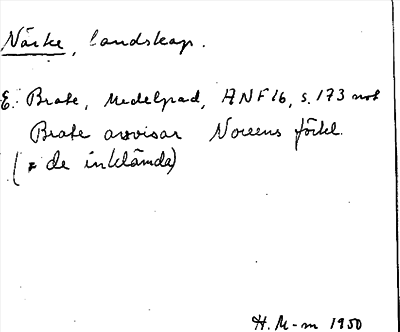 Närke, landskap.
E. Brate, Medelpad, ANF 16, s. 173 not
Brate avvisar Noreens förkl.
(= de inklämda)
H. M-m 1950